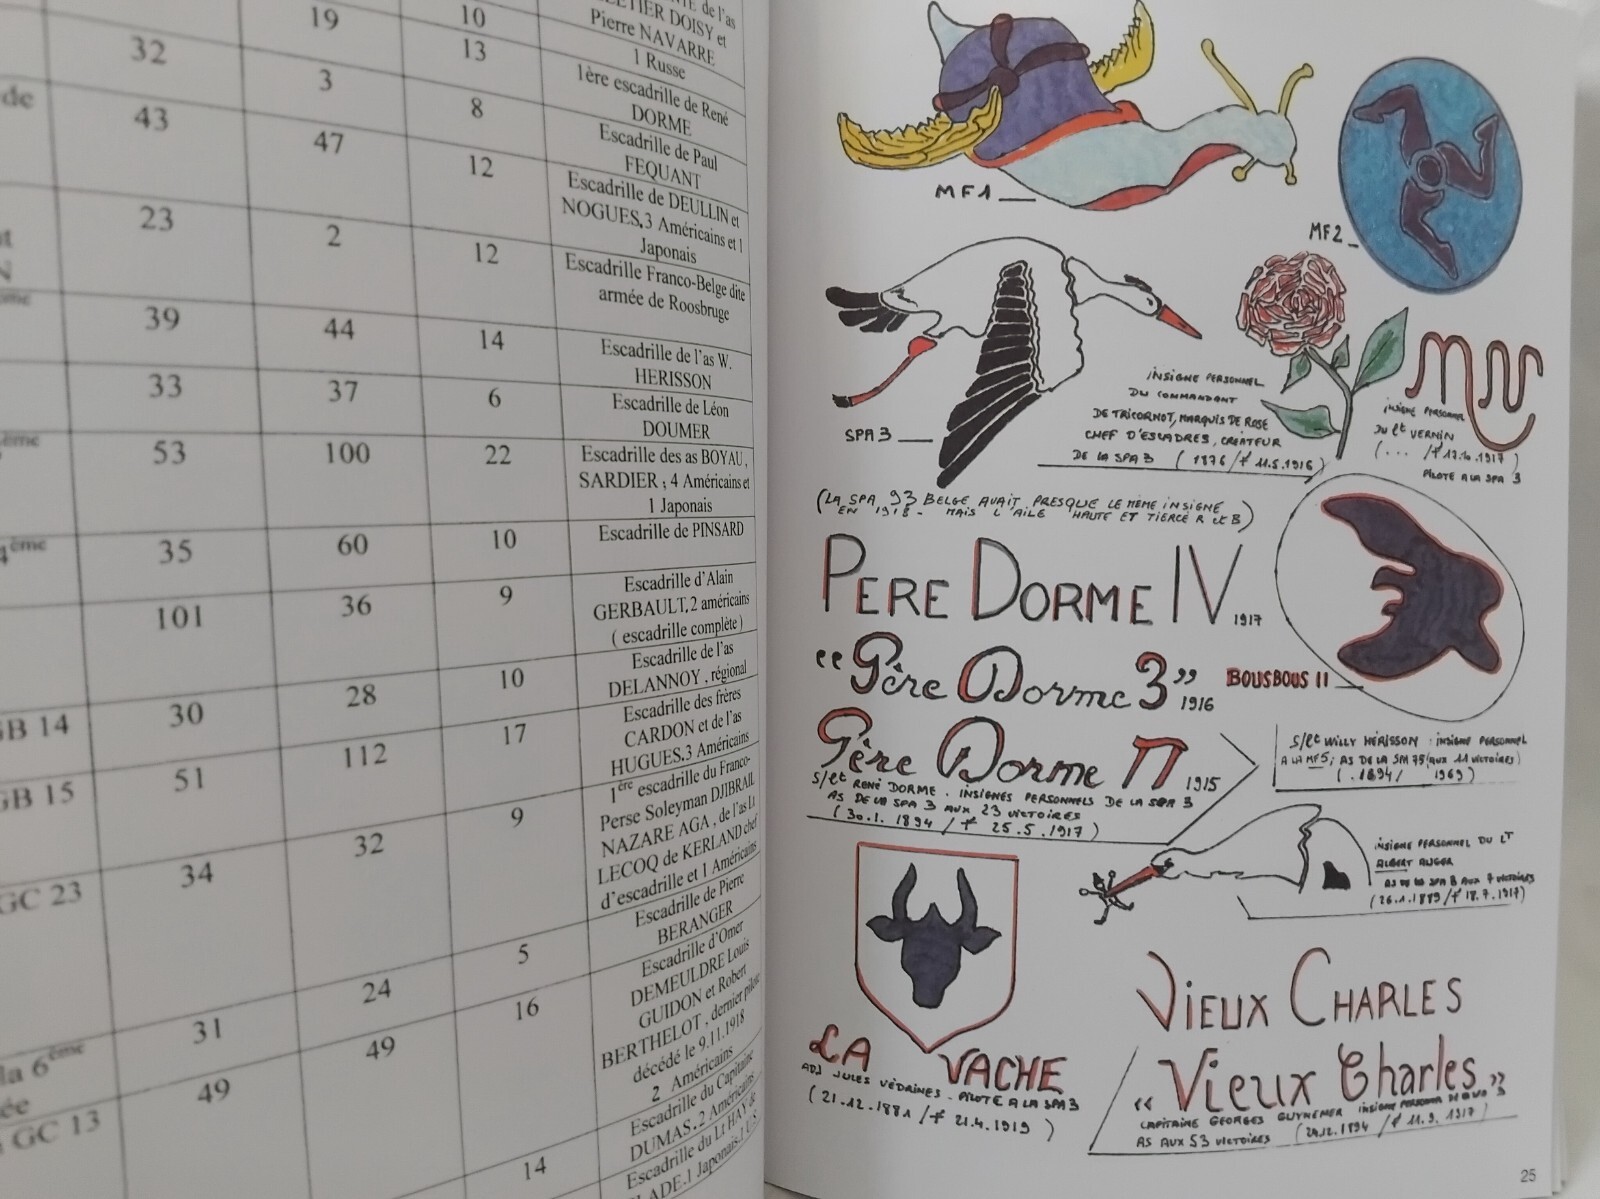 19
10
de l'as
DOISY et
Pierre NAVARRE
32
3
13
1 Russe
de
43
47
8
1ère escadrille de René
DORME
12
Escadrille de Paul
FEQUANT
23
2
12
Escadrille de DEULLIN et
NOGUES.3 Américains et 1
Japonais
39
44
14
Escadrille Franco-Belge dite
armée de Roosbruge
33
37
6
Escadrille de l'as W.
HERISSON
53
100
22
Escadrille de Léon
DOUMER
35
60
10
Escadrille des as BOYAU,
SARDIER ; 4 Américains et
1 Japonais
4ème
101
36
9
Escadrille de PINSARD
Escadrille d'Alain
GERBAULT,2 américains
( escadrille complète )
GB 14
30
28
10
Escadrille de l'as
DELANNOY , régional
GB 15
51
112
17
Escadrille des frères
CARDON et de l'as
HUGUES.3 Américains
GC 23
34
32
9
1ère escadrille du Franco-
Perse Soleyman DJIBRAIL
NAZARE AGA , de l'as Lt
LECOQ de KERLAND chef
d'escadrille et 1 Américains
31
24
5
Escadrille de Pierre
BERANGER
la 6ème
GC 13
49
49
16
Escadrille d'Omer
DEMEULDRE Louis
GUIDON et Robert
BERTHELOT , dernier pilote
décédé le 9.11.1918
2 Américains
14
Escadrille du Capitaine
DUMAS.2 Américains
Escadrille du Lt HAY de
SLADE.1 Japonais.1 U.S
MF1
MF2
SPA 3
INSIGNE PERSONNEL
DU COMMANDANT
DE TRICORNOT, MARQUIS DE ROSE
CHEF D'ESCADRES, CREATEUR
DE LA SPA 3 (1876/† 11.5.1916)
INSIGNE PERSONNEL
DU Lt VERNIN
(... /† 17.10.1917)
PILOTE A LA SPA 3
(LA SPA 93 BELGE AVAIT PRESQUE LE MEME INSIGNE
EN 1918 - MAIS L'AILE HAUTE ET TIERCE R et B)
PERE DORME IV 1917
"Père Dorme 3" 1916
BOUSBOUS II
Père Dorme II 1915
S/Lt RENÉ DORME. INSIGNES PERSONNELS DE LA SPA 3
AS DE LA SPA 3 AUX 23 VICTOIRES
(30.1.1894/† 25.5.1917)
S/Lt WILLY HÉRISSON : INSIGNE PERSONNEL
A LA MF5, AS DE LA SPA 75 (AUX 11 VICTOIRES)
(.1894/ 1969)
INSIGNE PERSONNEL DU LT
ALBERT AUGER
AS DE LA SPA 3 AUX 7 VICTOIRES
(26.1.1889/† 18.7.1917)
LA VACHE
ADJ JULES VÉDRINES - PILOTE A LA SPA 3
(21.12.1881/† 21.4.1919)
VIEUX CHARLES
"Vieux Charles"
CAPITAINE GEORGES GUYNEMER INSIGNE PERSONNEL
AS AUX 53 VICTOIRES (24.12.1894/† 11.9.1917)
25